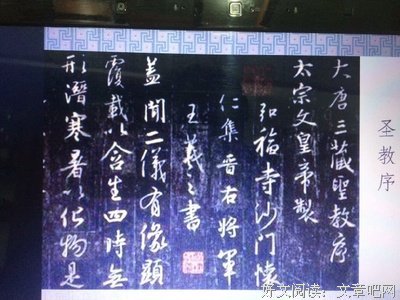 圣教序
大唐三藏聖教序
太宗文皇帝製
弘福寺沙門懷
仁集晉右將軍
王羲之書
蓋聞二儀有像顯
覆載以含生四時無
形潛寒暑以化物是
好文阅读：文章吧网